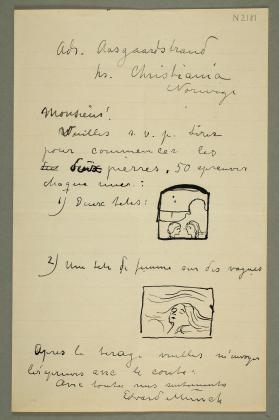 N 2181
Adr. Aasgaardstrand
pr. Christiania
Norwège
Monsieur!
Veuillez s. v. p. tirez
pour commencer les
deux pierres, 50 epreuves
chaque
1) Deux tetes:
2) Une tete de femme sur des vagues
Apres le tirage veuillez m'envoyer
les epreuves avec le conto:
Avec toutes mes salutations
Edvard Munch